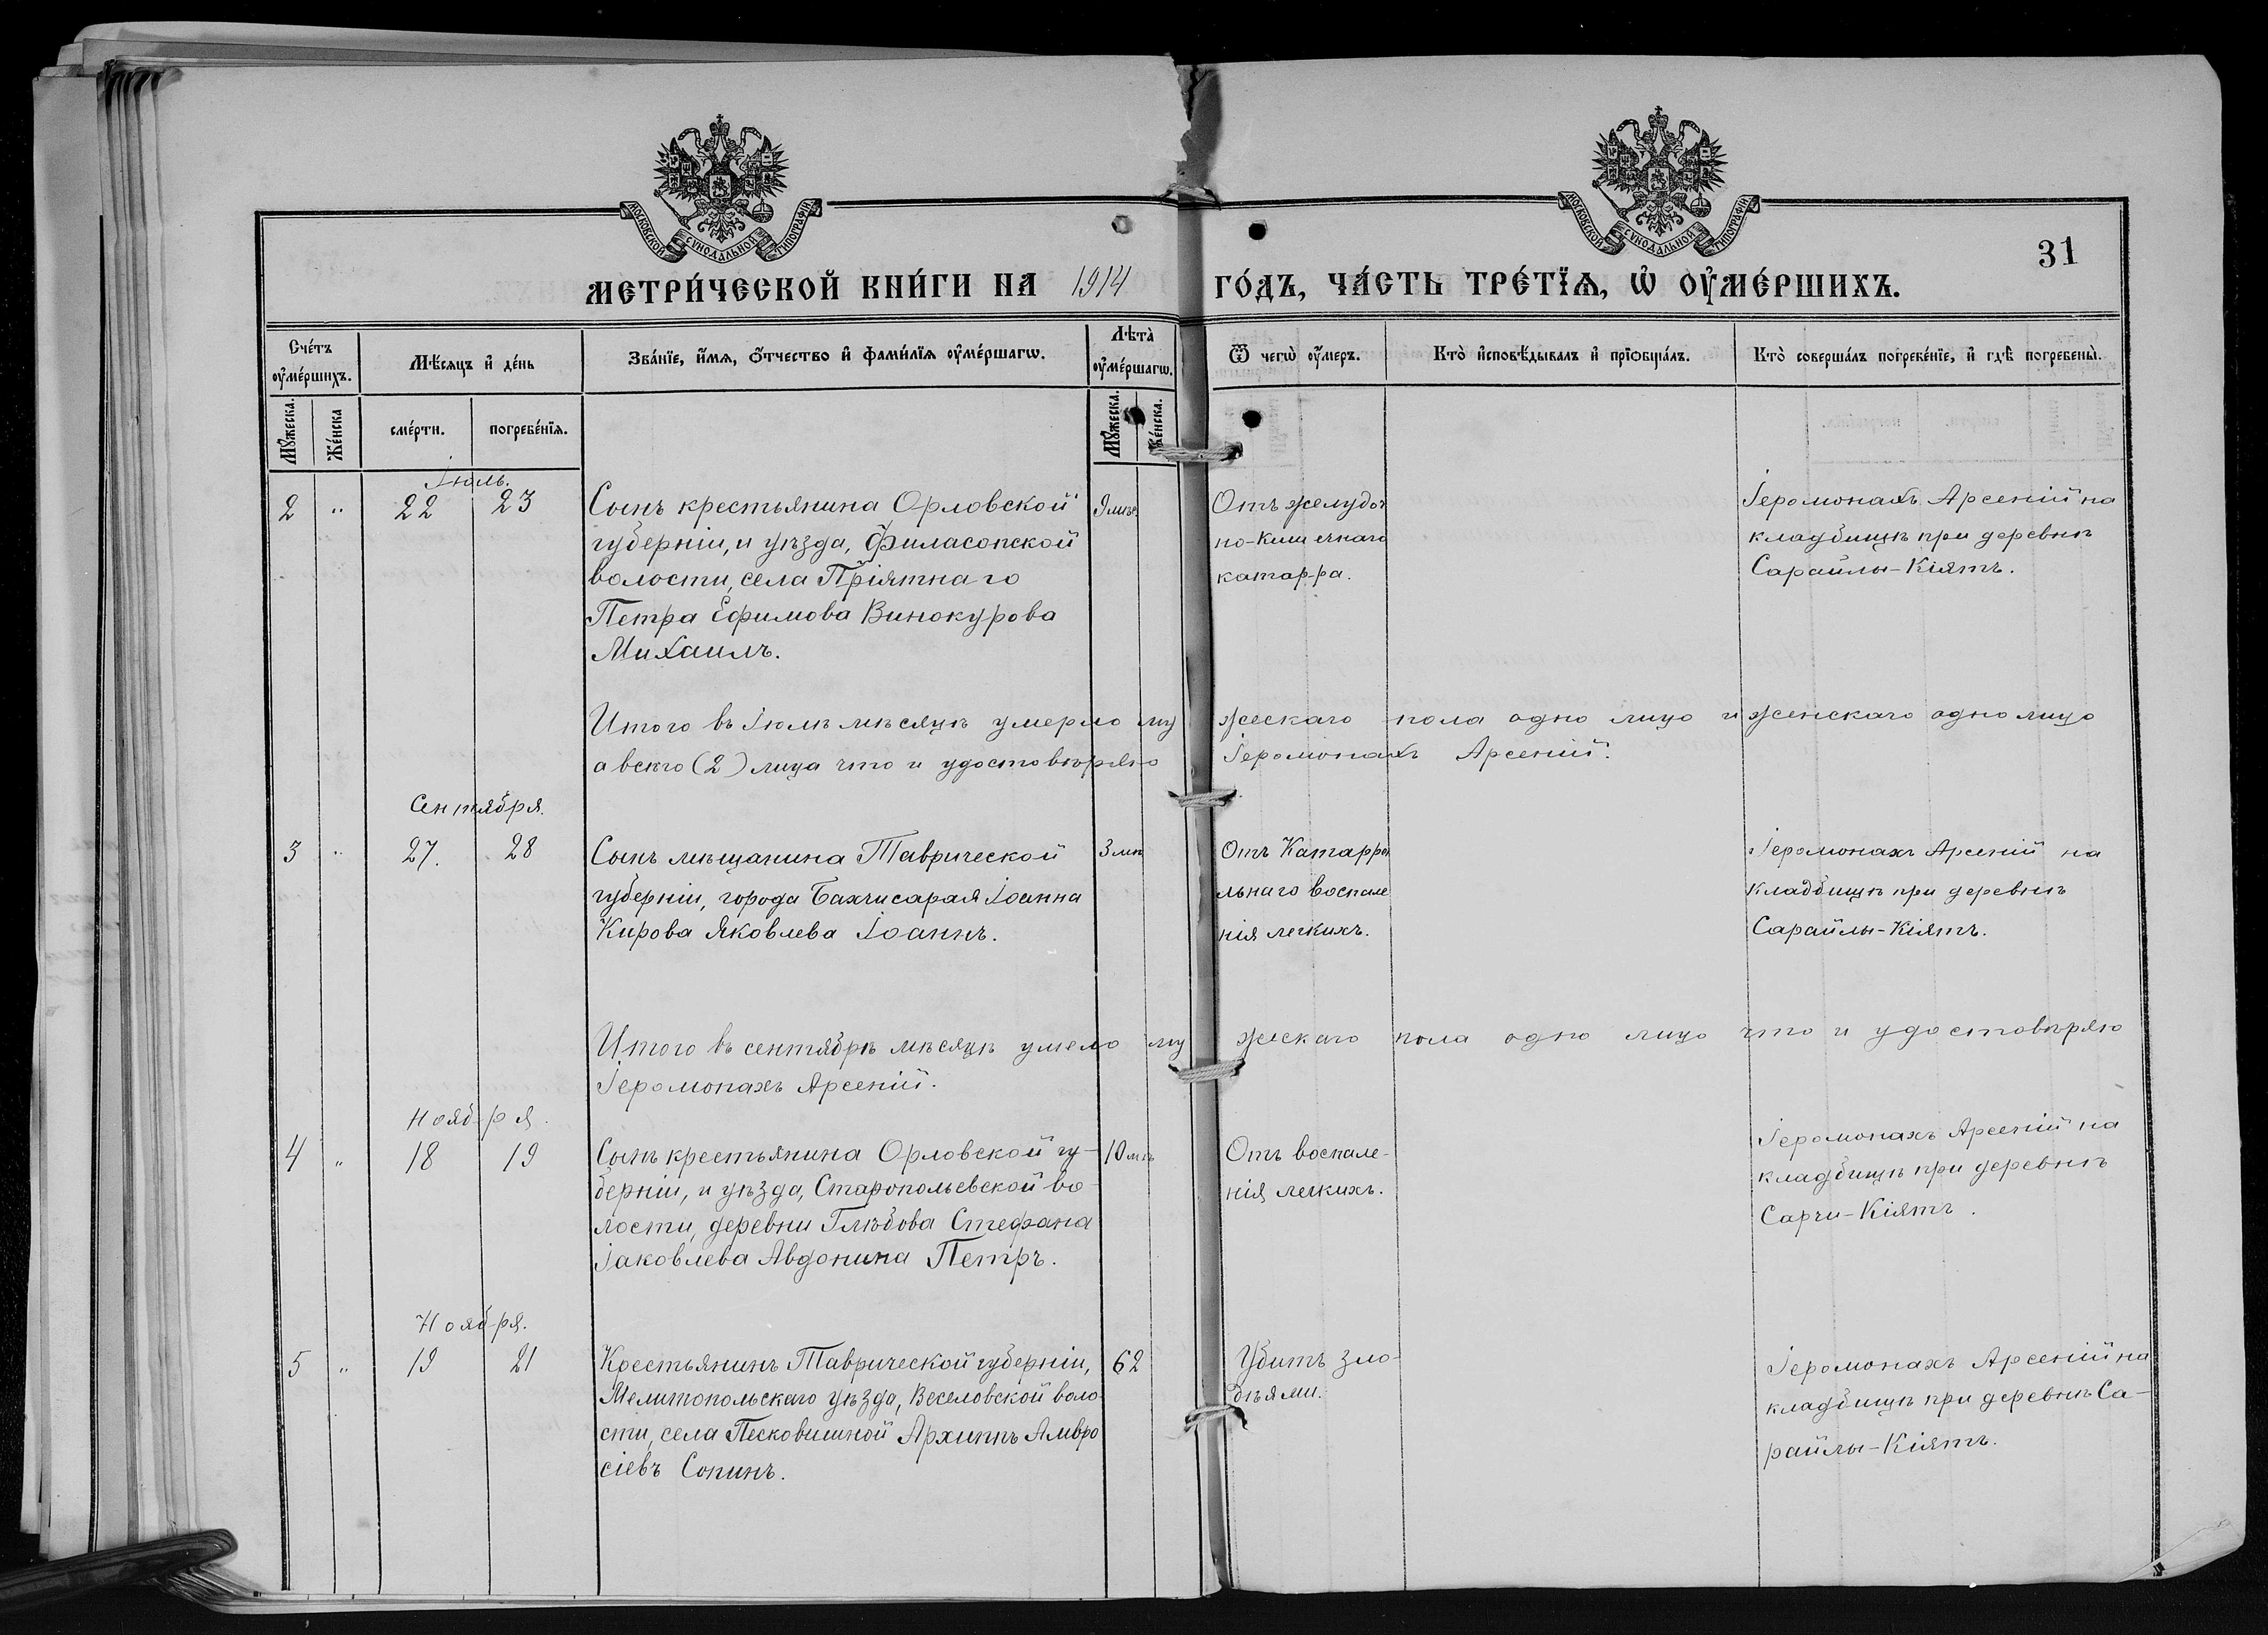 МОСКОВСКОЙ СУНОДАЛЬНОЙ ТИПОГРАФІИ
МОСКОВСКОЙ СУНОДАЛЬНОЙ ТИПОГРАФІИ
31
МЕТРИ́ЧЕСКОЙ КНИ́ГИ НА 1914 ГО́ДЪ, ЧА́СТЬ ТРЕ́ТЇѦ, Ѡ҆ ОУ҆МЕ́РШИХЪ.
Сче́тъ оу҆ме́ршихъ.
Мѣ́сѧцъ и҆ де́нь
Зва́нїе, и҆́мѧ, ѻ҆́тчество и҆ фами́лїѧ оу҆ме́ршагѡ.
Лѣта̀ оу҆ме́ршагѡ.
Ѿ чегѡ̀ оу҆́меръ.
Кто̀ и҆сповѣ́дывалъ и҆ прїѡбща́лъ.
Кто̀ соверша́лъ погребе́нїе, и҆ гдѣ̀ погребены̀.
Мꙋ́жеска.
Же́нска
сме́рти.
погребе́нїѧ.
Мꙋ́жеска.
Же́нска.
Іюль.
2 " 22 23
Сынъ крестьянина Орловской
губерніи, и уѣзда, Филасопской
волости, села Пріятнаго
Петра Ефимова Винокурова
Михаилъ.
9 мѣс.
Отъ желудоч
но-кишечнаго
катар-ра.
Іеромонахъ Арсеній на
кладбищѣ при деревнѣ
Сарайлы-Кіятъ.
Итого въ Іюлѣ мѣсяцѣ умерло му жескаго пола одно лицо и женскаго одно лицо
а всего (2) лица что и удостовѣряю Іеромонахъ Арсеній.
Сентября.
3 " 27. 28
Сынъ мѣщанина Таврической
губерніи, города Бахчисарая Іоанна
Кирова Яковлева Іоаннъ.
3 мѣ
Отъ Катарра
льнаго воспале
нія легкихъ.
Іеромонахъ Арсеній на
кладбищѣ при деревнѣ
Сарайлы-Кіятъ.
Итого въ сентябрѣ мѣсяцѣ умело му жескаго пола одно лицо что и удостовѣряю
Іеромонахъ Арсеній.
Ноября.
4 " 18 19
Сынъ крестьянина Орловской гу-
берніи, и уѣзда, Старопольевской во-
лости, деревни Глѣбова Стефана
Іаковлева Авдонина Петръ.
10 мѣ
Отъ воспале-
нія легкихъ.
Іеромонахъ Арсеній на
кладбищѣ при деревнѣ
Сарчи-Кіятъ.
Ноября.
5 " 19 21
Крестьянинъ Таврической губерніи,
Мелитопольскаго уѣзда, Веселовской воло
сти, села Песковишной Архиппъ Амвро
сіевъ Сопинъ.
62
Убитъ зло-
дѣями.
Іеромонахъ Арсеній на
кладбищѣ при деревнѣ Са-
райлы-Кіятъ.